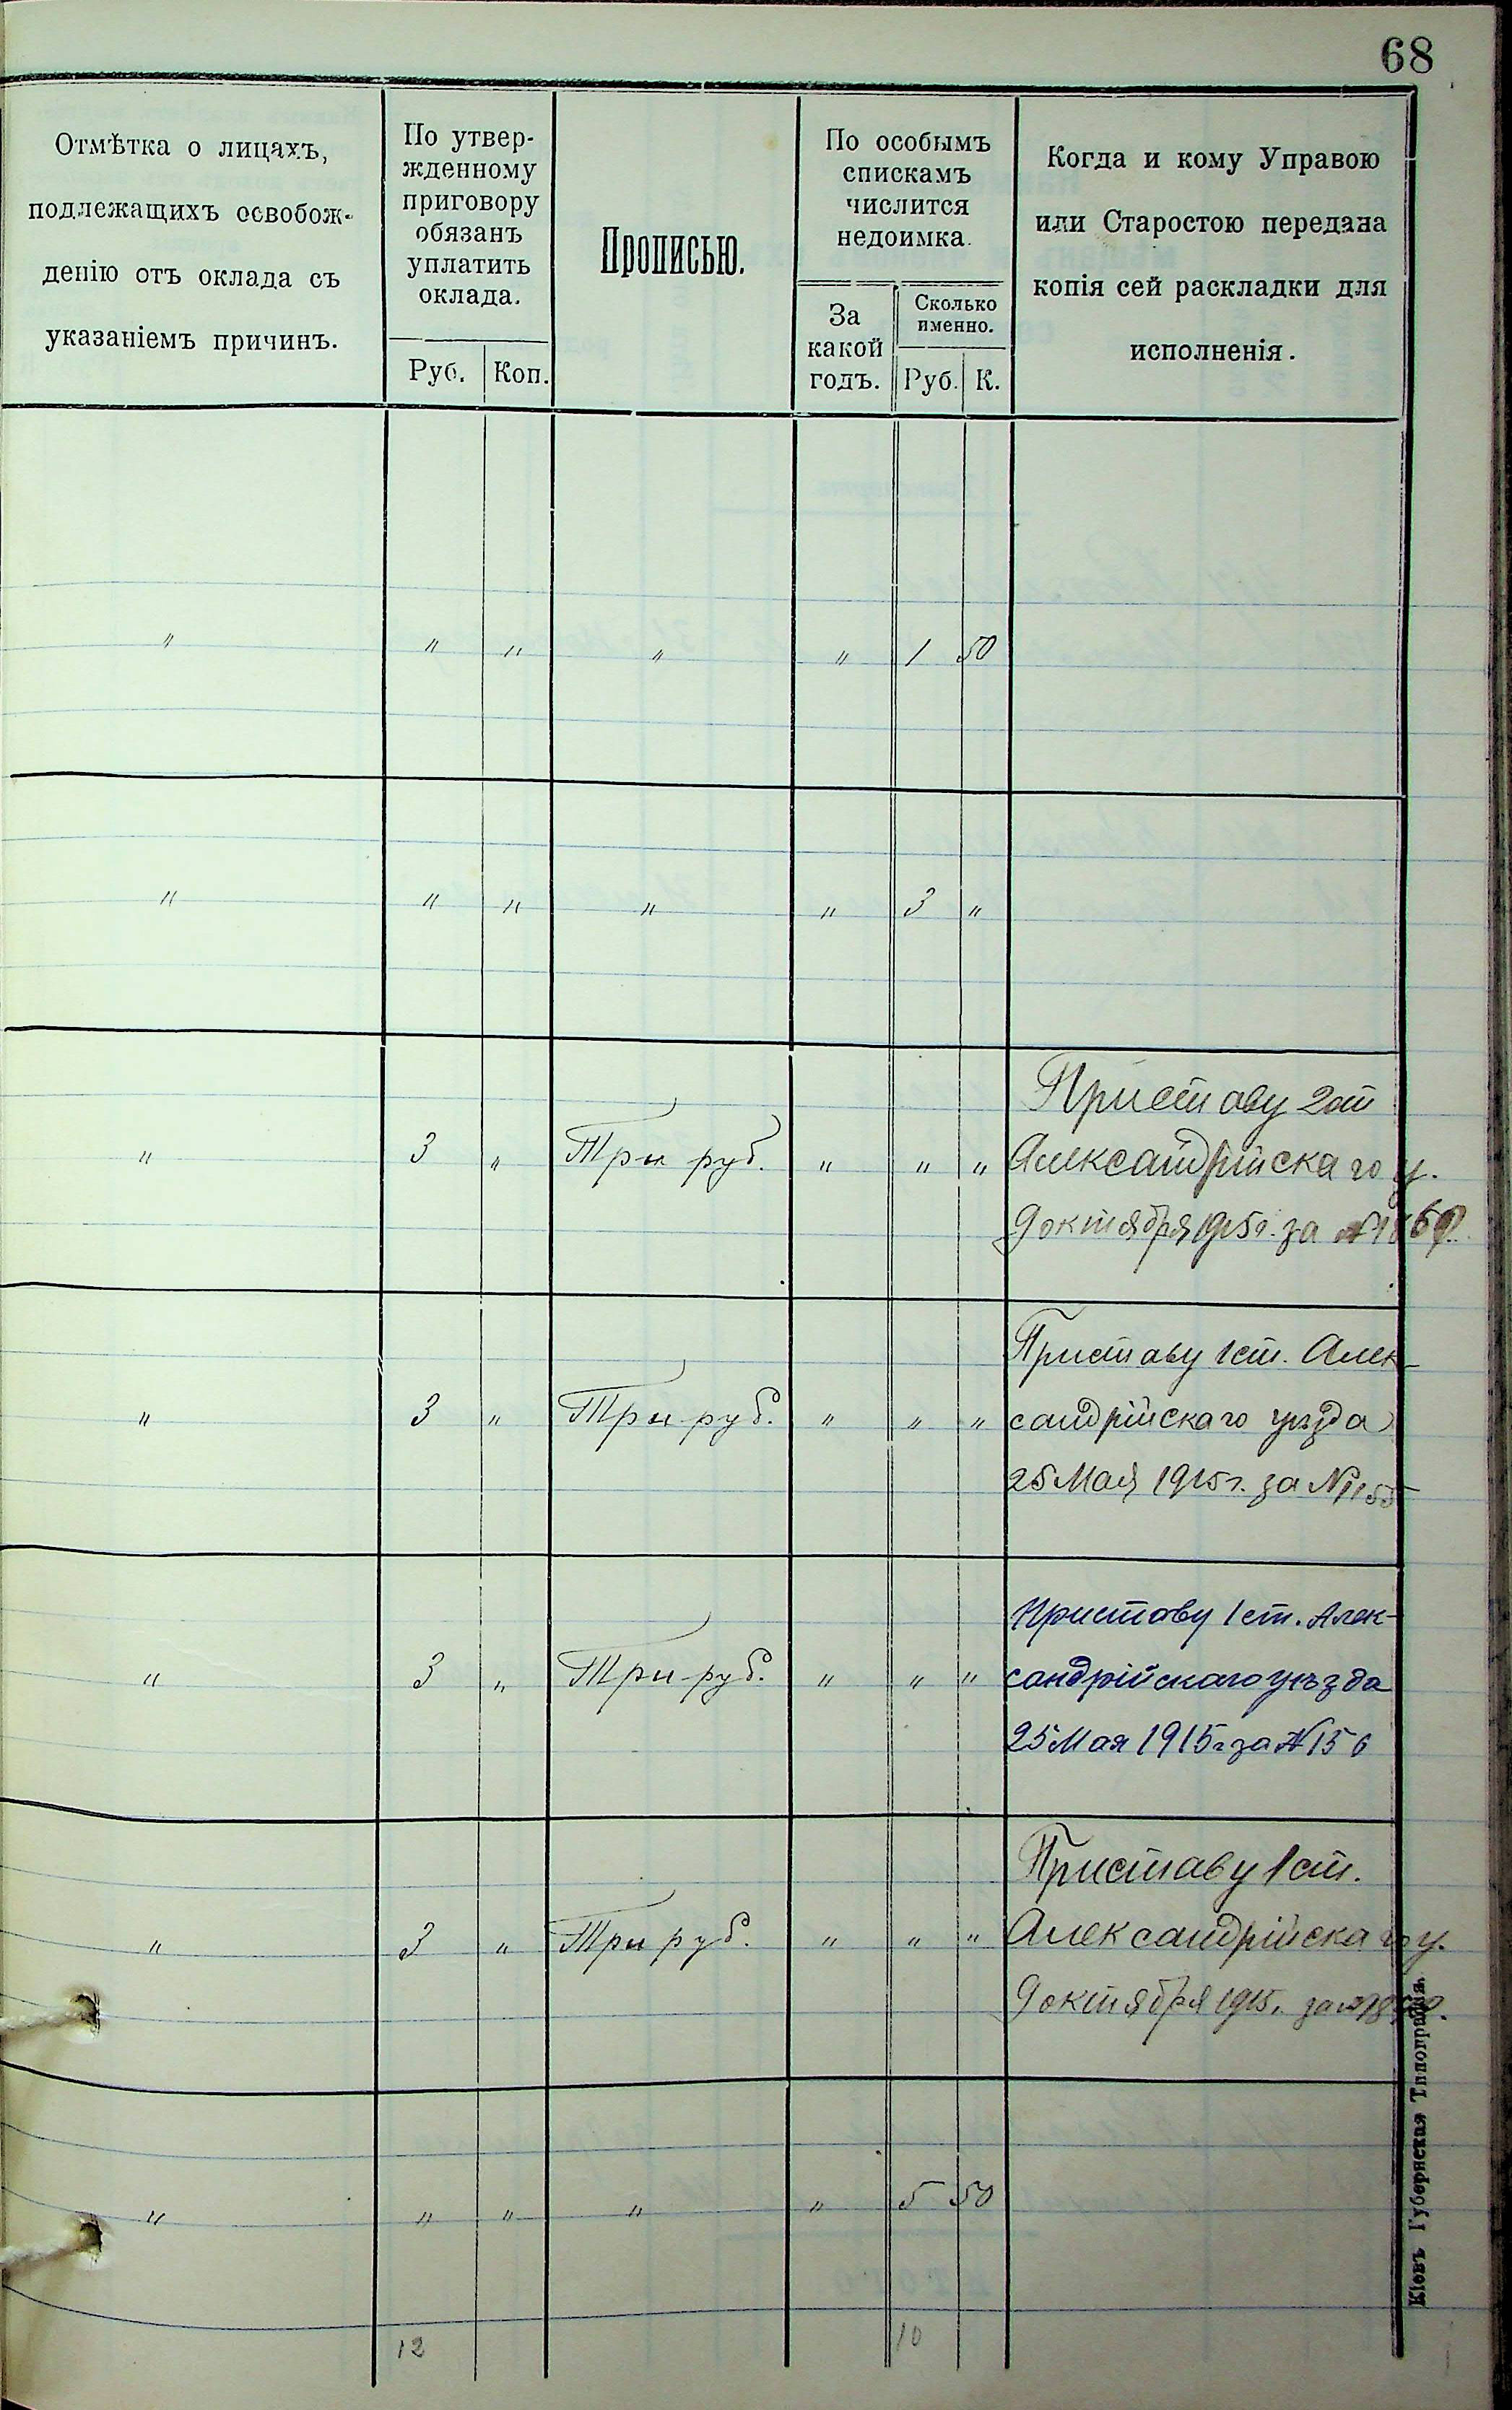 68
Отмѣтка о лицахъ,
подлежащихъ освобож-
денію отъ оклада съ
указаніемъ причинъ.
По утвер-
жденному
приговору
обязанъ
уплатить
оклада.
Руб. Коп.
Прописью.
По особымъ
спискамъ
числится
недоимка.
За
какой
годъ.
Сколько
именно.
Руб. К.
Когда и кому Управою
или Старостою передана
копія сей раскладки для
исполненія.
" " " " " 1 50
" " " " " 3 "
Приставу 2 ст
" 3 " Три руб. " " " Александрійскаго у.
9 октября 1915 г. за №
Приставу 1 ст. Алек-
" 3 " Три руб. " " " сандрійскаго уѣзда
25 Мая 1915 г. за № 1155
Приставу 1 ст. Алек-
" 3 " Три руб. " " " сандрійскаго уѣзда
25 Мая 1915 г за № 156
Приставу 1 ст.
" 3 " Три руб. " " " Александрійскаго у.
9 октября 1915 г. за №
" " " " " 5 50
12 10
Кіевъ Губернская Типографія.